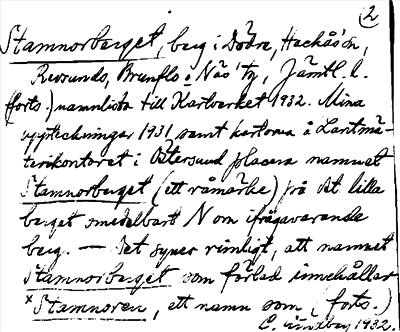 2
Stamnorberget, berg i Dödre, Hackås sn,
Revsunds, Brunflo o Näs tg, Jämtl. l.
(forts.) namnlista till Kartverket 1932. Mina
uppteckningar 1931 samt kartorna å Lantmä-
terikontoret i Östersund placera namnet
Stamnorberget (ett råmärke) på det lilla
berget omedelbart N om ifrågavarande
berg. — Det synes rimligt, att namnet
Stamnorberget som förled innehåller
*Stamnoren, ett namn som (forts.)
C. Lindberg 1932.